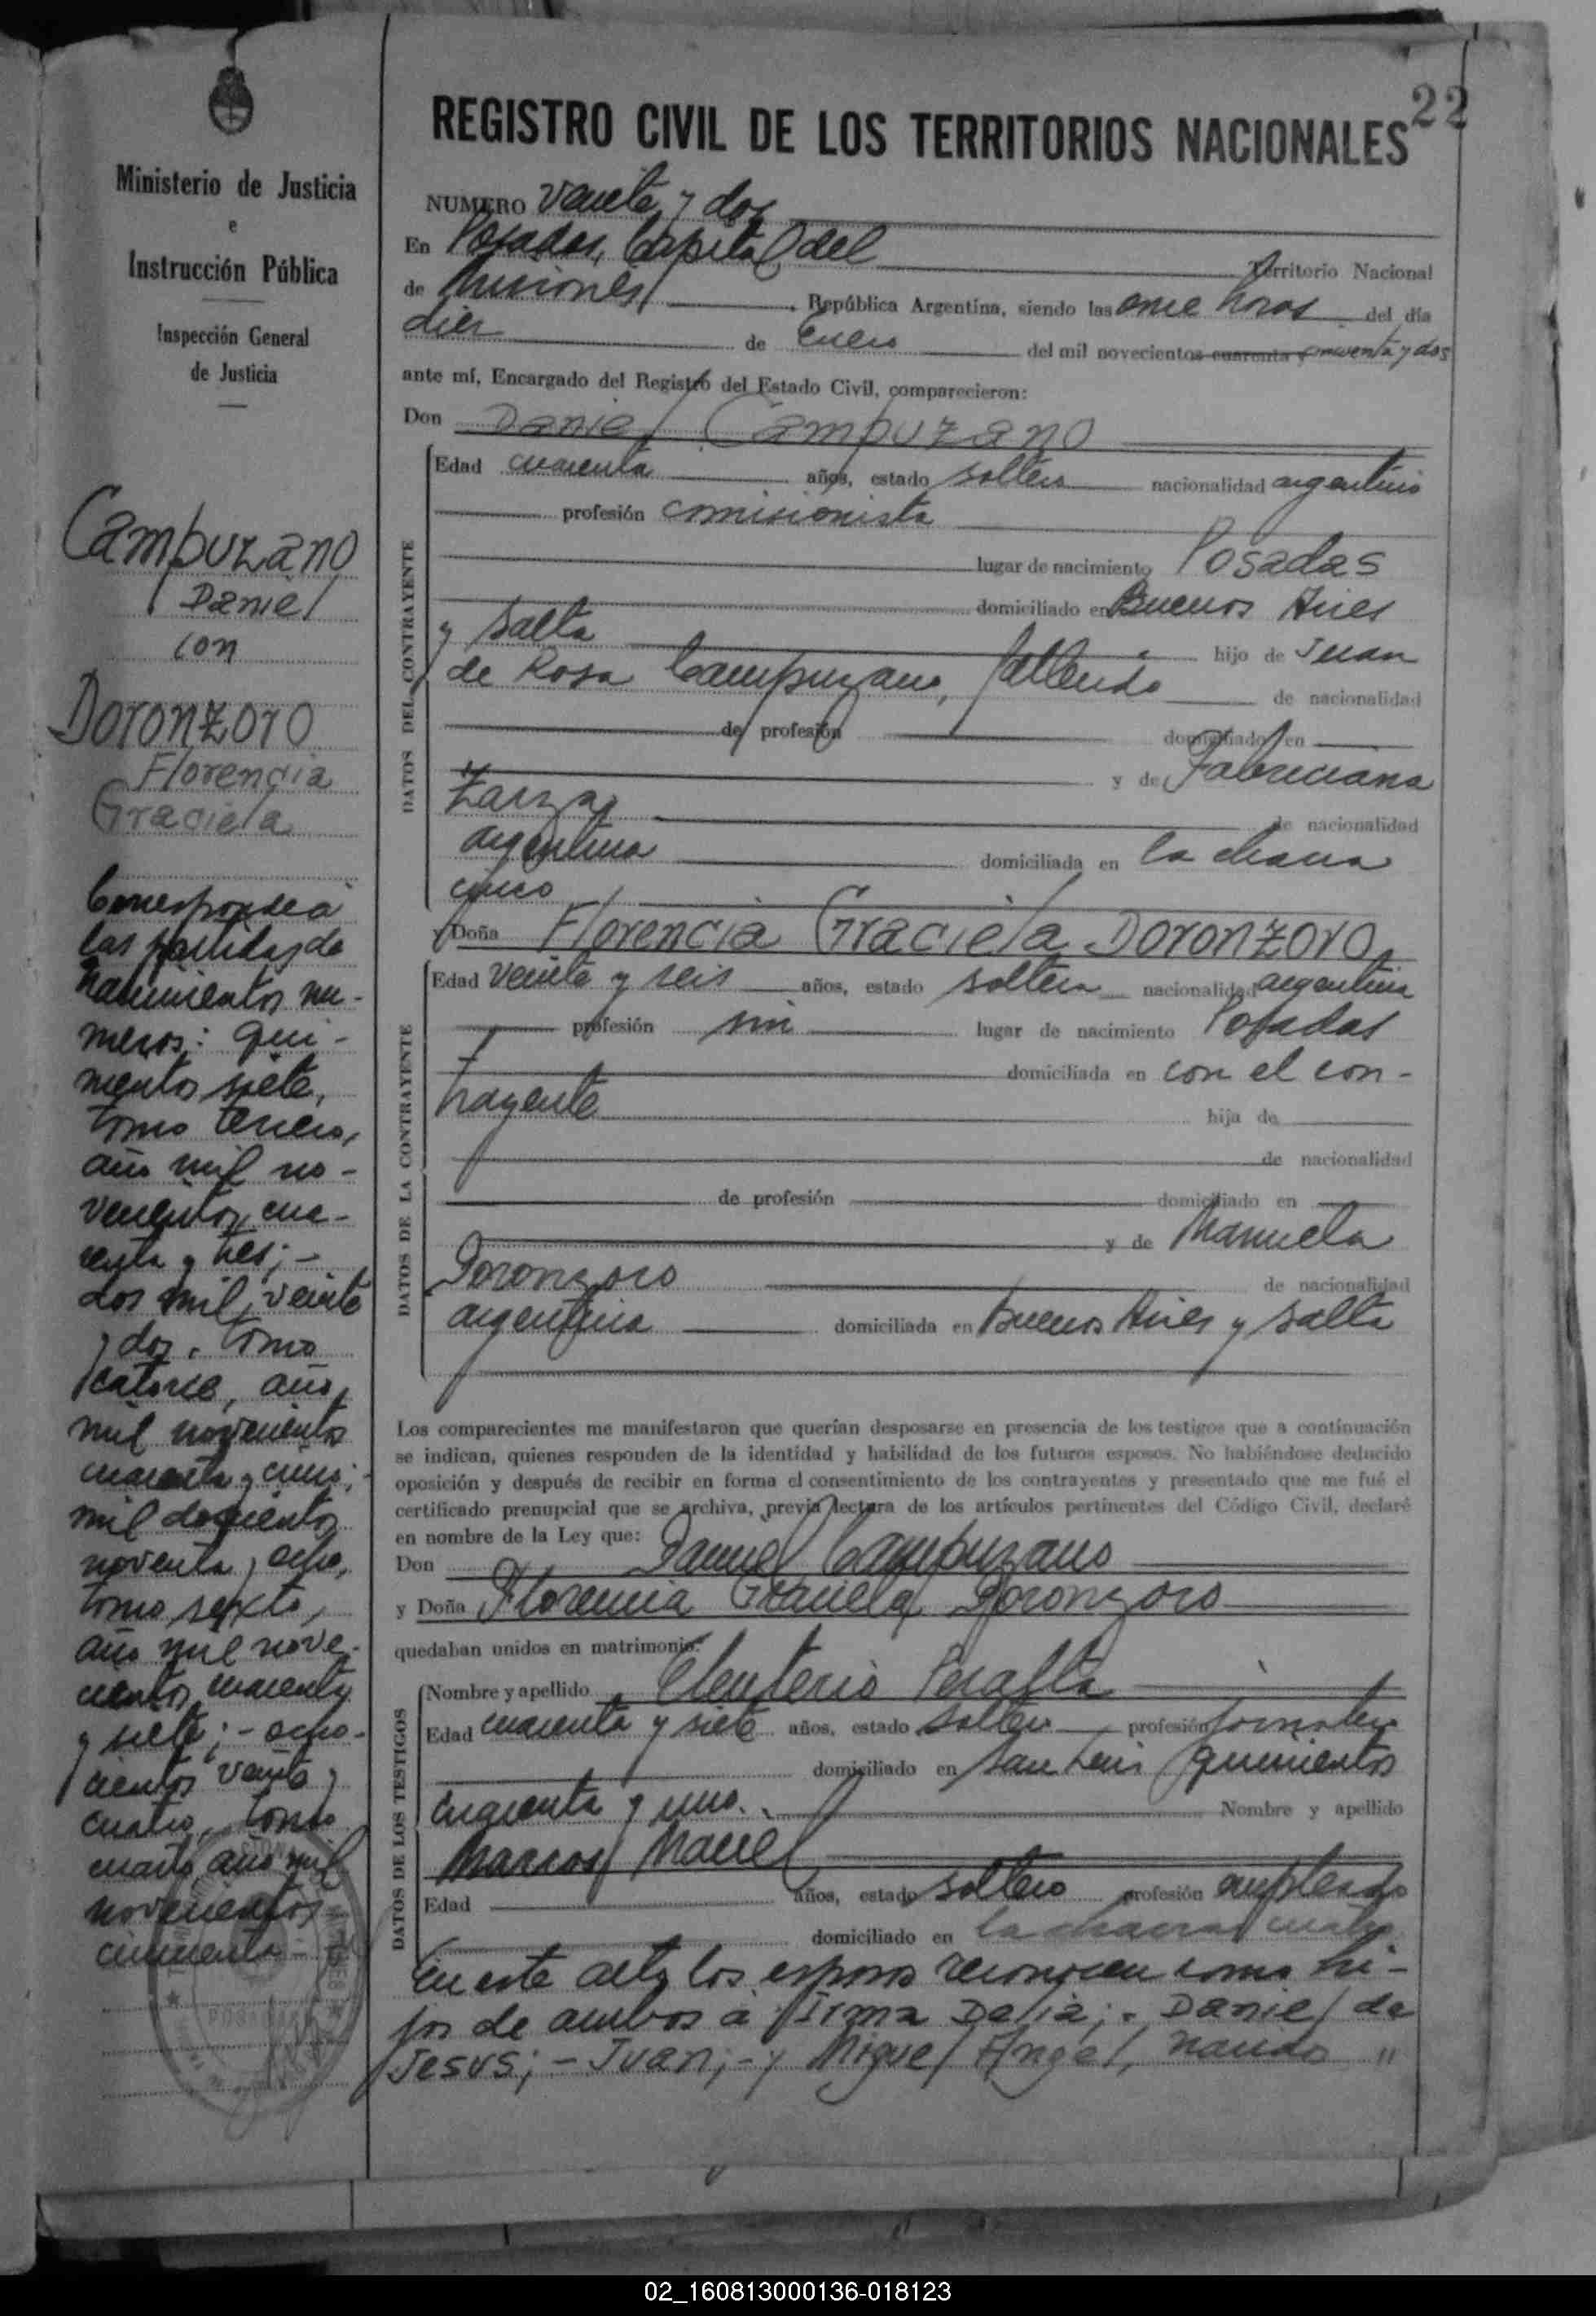 22
Ministerio de Justicia
e
Instrucción Pública
Inspección General
de Justicia
Campuzano
Daniel
con
Doronzoro
Florencia
Graciela
Corresponde a
las partidas de
Nacimientos nu-
meros: qui-
nientos siete,
tomo tercero,
año mil no-
vecientos cua-
renta y tres; -
dos mil veinte
y dos, tomo
catorce, año
mil novecientos
cuarenta y cinco;
mil doscientos
noventa y ocho,
tomo sexto,
año mil nove-
cientos cuarenta
y siete; - ocho-
cientos veinte y
cuatro, tomo
cuarto año mil
novecientos
cincuenta -
POSADAS
REGISTRO CIVIL DE LOS TERRITORIOS NACIONALES
NUMERO veinte y dos
En Posadas, Capital del Territorio Nacional
de Misiones, República Argentina, siendo las once horas del día
diez de Enero del mil novecientos cuarenta y cincuenta y dos
ante mí, Encargado del Registro del Estado Civil, comparecieron:
Don Daniel Campuzano
DATOS DEL CONTRAYENTE
Edad cuarenta años, estado soltero nacionalidad argentino
profesión comisionista
lugar de nacimiento Posadas
domiciliado en Buenos Aires
y Salta hijo de Juan
de Rosa Campuzano, fallecido de nacionalidad
de profesión domiciliado en
y de Fabriciana
Zarza de nacionalidad
argentina domiciliada en la chacra
cinco
y Doña Florencia Graciela Doronzoro
DATOS DE LA CONTRAYENTE
Edad veinte y seis años, estado soltera nacionalidad argentina
profesión sin lugar de nacimiento Posadas
domiciliada en con el con-
trayente hija de
de nacionalidad
de profesión domiciliado en
y de Manuela
Doronzoro de nacionalidad
argentina domiciliada en Buenos Aires y Salta
Los comparecientes me manifestaron que querían desposarse en presencia de los testigos que a continuación
se indican, quienes responden de la identidad y habilidad de los futuros esposos. No habiéndose deducido
oposición y después de recibir en forma el consentimiento de los contrayentes y presentado que me fué el
certificado prenupcial que se archiva, previa lectura de los artículos pertinentes del Código Civil, declaré
en nombre de la Ley que:
Don Daniel Campuzano
y Doña Florencia Graciela Doronzoro
quedaban unidos en matrimonio.
DATOS DE LOS TESTIGOS
Nombre y apellido Eleuterio Peralta
Edad cuarenta y siete años, estado soltero profesión jornalero
domiciliado en San Luis quinientos
cuarenta y uno. Nombre y apellido
Marcos Maciel
Edad años, estado soltero profesión empleado
domiciliado en la chacra cuatro
En este acto los esposos reconocen como hi-
jos de ambos a Irma Delia; - Daniel de
Jesus; - Juan; - y Miguel Angel, nacidos "
02_160813000136-018123